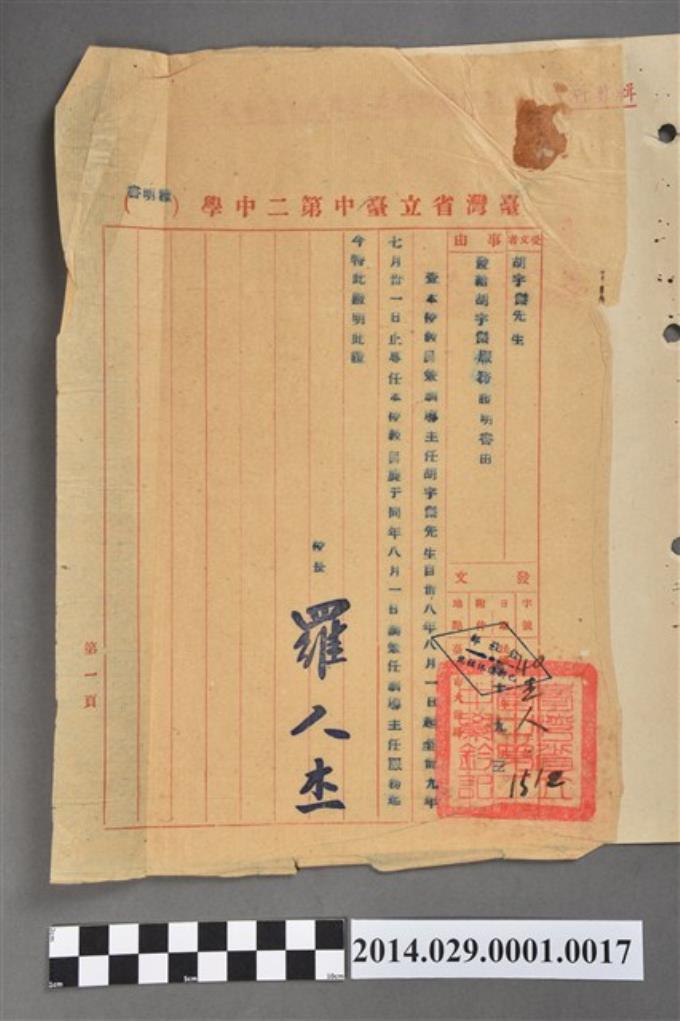 臺灣省立臺中第二中學(證明書)
受文者
胡宇傑先生
事由
發給胡宇傑服務證明書由
發文
字號
日期
附件
地點
查本校教員兼訓導主任胡宇傑先生自卅八年八月一日起至卅九年
七月卅一日止專任本校教員並于同年八月一日調兼任訓導主任服務迄
今特此證明此證
校長
羅人杰
第一頁
1512
1cm
5cm
10cm
2014.029.0001.0017